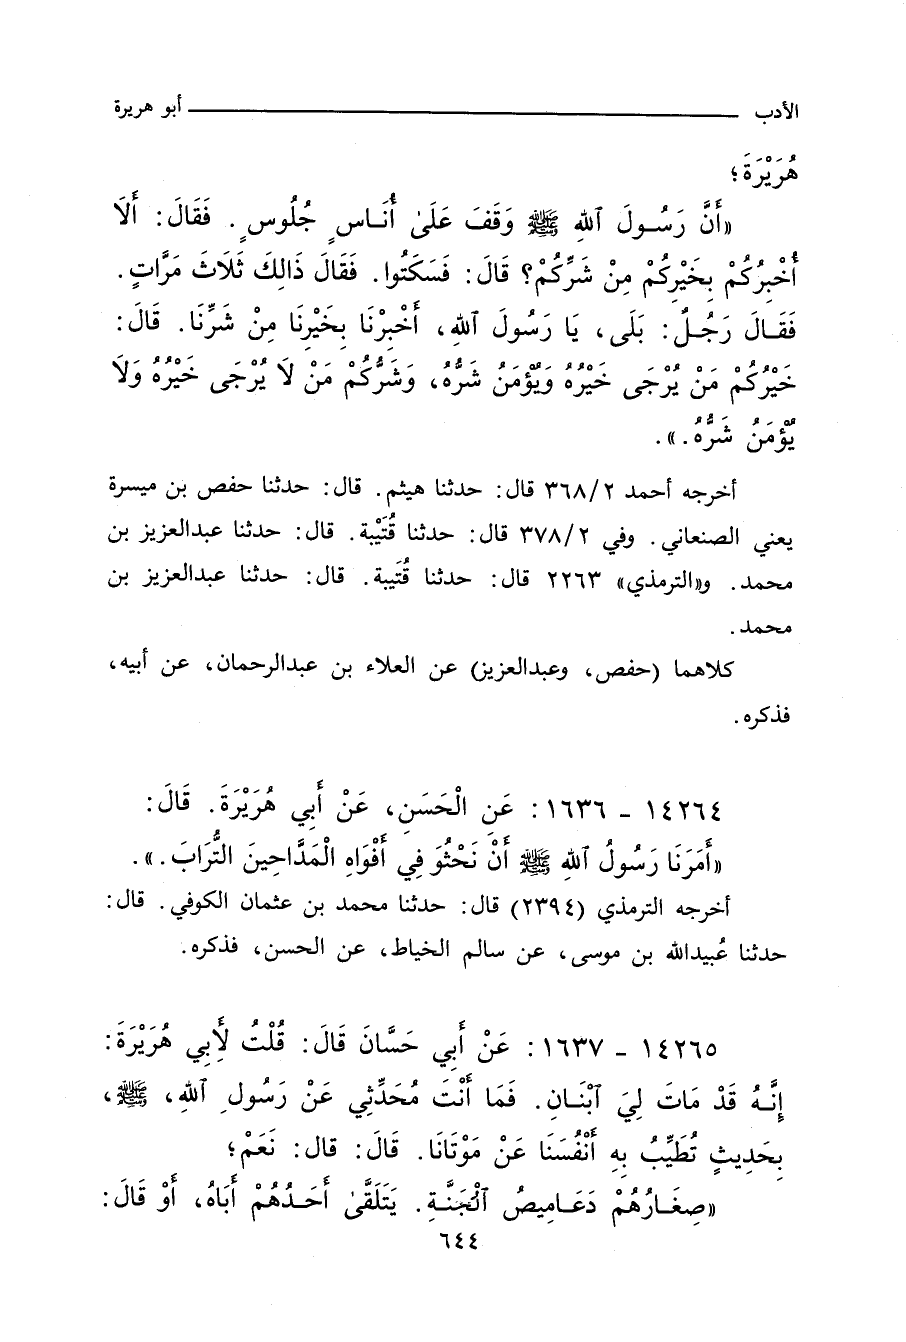 الأدب ــــــــــ أبو هريرة
هُرَيْرَةَ؛
«أَنَّ رَسُولَ ٱللهِ ﷺ وَقَفَ عَلَىٰ أُنَاسٍ جُلُوسٍ. فَقَالَ: أَلَا
أُخْبِرُكُمْ بِخَيْرِكُمْ مِنْ شَرِّكُمْ؟ قَالَ: فَسَكَتُوا. فَقَالَ ذَالِكَ ثَلَاثَ مَرَّاتٍ.
فَقَالَ رَجُلٌ: بَلَى، يَا رَسُولَ ٱللهِ، أَخْبِرْنَا بِخَيْرِنَا مِنْ شَرِّنَا. قَالَ:
خَيْرُكُمْ مَنْ يُرْجَى خَيْرُهُ وَيُؤْمَنُ شَرُّهُ، وَشَرُّكُمْ مَنْ لَا يُرْجَى خَيْرُهُ وَلَا
يُؤْمَنُ شَرُّهُ.».
أخرجه أحمد ٣٦٨/٢ قال: حدثنا هيثم. قال: حدثنا حفص بن ميسرة
يعني الصنعاني. وفي ٣٧٨/٢ قال: حدثنا قُتَيْبة. قال: حدثنا عبدالعزيز بن
محمد. و«الترمذي» ٢٢٦٣ قال: حدثنا قُتَيبة. قال: حدثنا عبدالعزيز بن
محمد.
كلاهما (حفص، وعبدالعزيز) عن العلاء بن عبدالرحمان، عن أبيه،
فذكره.
١٤٢٦٤ ـ ١٦٣٦: عَنِ الْحَسَنِ، عَنْ أَبِي هُرَيْرَةَ. قَالَ:
«أَمَرَنَا رَسُولُ ٱللهِ ﷺ أَنْ نَحْثُوَ فِي أَفْوَاهِ الْمَدَّاحِينَ التُّرَابَ.».
أخرجه الترمذي (٢٣٩٤) قال: حدثنا محمد بن عثمان الكوفي. قال:
حدثنا عُبيدالله بن موسى، عن سالم الخياط، عن الحسن، فذكره.
١٤٢٦٥ ـ ١٦٣٧: عَنْ أَبِي حَسَّانَ قَالَ: قُلْتُ لِأَبِي هُرَيْرَةَ:
إِنَّهُ قَدْ مَاتَ لِيَ ٱبْنَانِ. فَمَا أَنْتَ مُحَدِّثِي عَنْ رَسُولِ ٱللهِ، ﷺ،
بِحَدِيثٍ تُطَيِّبُ بِهِ أَنْفُسَنَا عَنْ مَوْتَانَا. قَالَ: قال: نَعَمْ؛
«صِغَارُهُمْ دَعَامِيصُ ٱلْجَنَّةِ. يَتَلَقَّىٰ أَحَدُهُمْ أَبَاهُ، أَوْ قَالَ:
٦٤٤